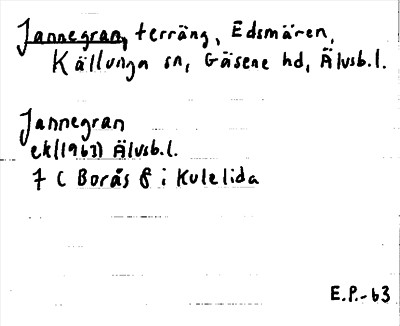 Jannegran, terräng, Edsmären,
Källunga sn, Gäsene hd, Älvsb.l.
Jannegran
ek(1963) Älvsb.l.
7 C Borås f i Kulelida
E.P.-63